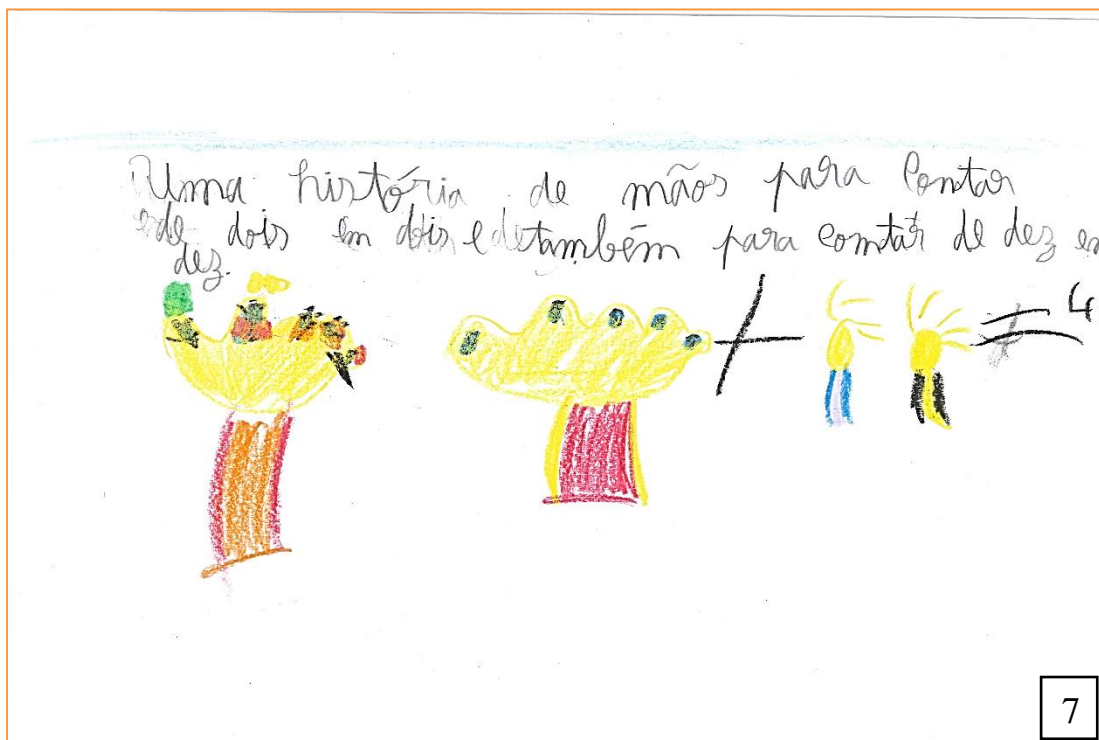 Uma história de mãos para Contar
de dois em dois e de também para comtar de dez em
dez.
+ = 4
7